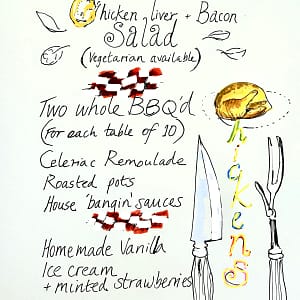 Chicken, liver + Bacon
Salad
(Vegetarian available)
Two whole BBQ'd
(For each table of 10)
Chickens
Celeriac Remoulade
Roasted pots
House 'bangin' sauces
Homemade Vanilla
Ice cream
+ minted strawberries